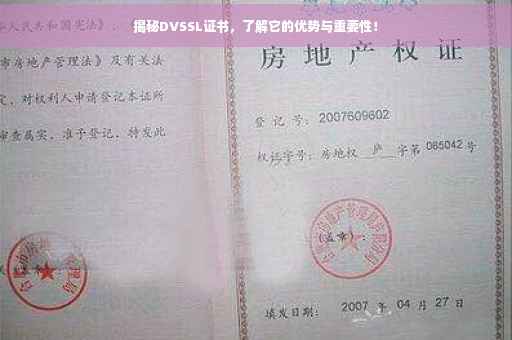 揭秘DVSSL证书，了解它的优势与重要性！
人民共和国宪法》、
市房地产管理法》及有关法
定，对权利人申请登记本证所
审查属实，准予登记，特发此
房地产权证
登记号：2007609602
权证字号：房地权 庐 字第 065042 号
(盖章)：
填发日期：2007 年 04 月 27 日